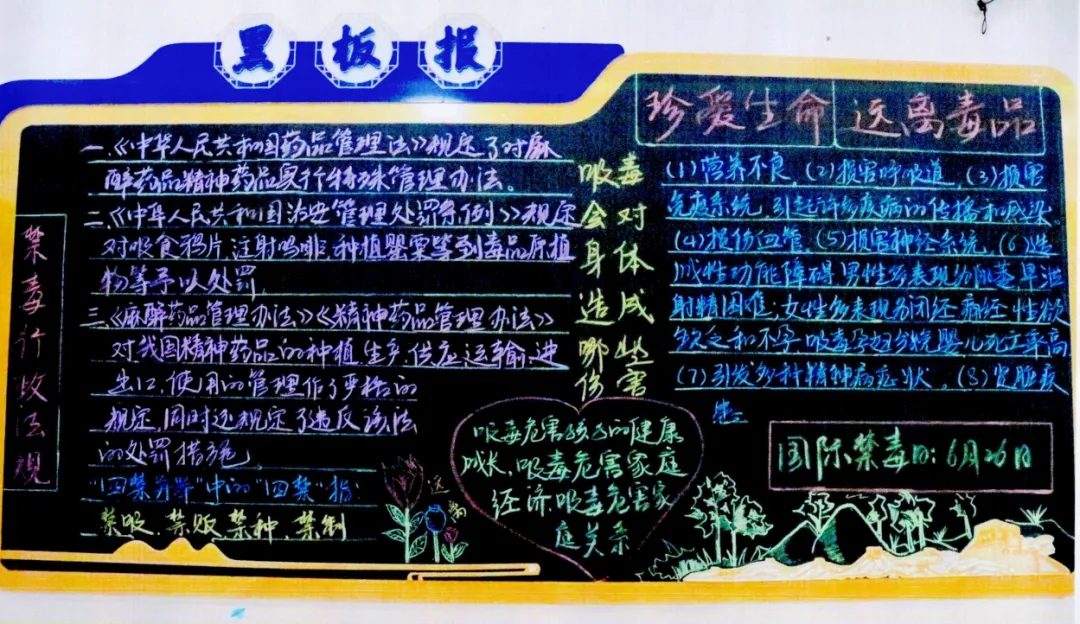 黑板报
珍爱生命 远离毒品
禁毒行政法规
一.《中华人民共和国药品管理法》规定了对麻
醉药品精神药品实行特殊管理办法。
二.《中华人民共和国治安管理处罚条例》规定
对吸食鸦片,注射吗啡,种植罂粟等到毒品原植
物等予以处罚.
三.《麻醉药品管理办法》《精神药品管理办法》
对我国精神药品的种植,生产,供应,运输,进
出口,使用的管理作了严格的
规定,同时还规定了违反该法
的处罚措施.
中的"四禁"指:
禁吸.禁贩.禁种.禁制
远离
吸毒
会对
身体
造成
哪些
伤害
(1)营养不良,(2)损害呼吸道,(3)损害
免疫系统,引起许多疾病的传播和感染
(4)损伤血管,(5)损害神经系统,(6)造
成性功能障碍,男性多表现为阳萎早泄
射精困难;女性多表现为闭经 痛经 性欲
缺乏和不孕,吸毒孕妇分娩婴儿死亡率高
(7)引发多种精神病症状。(8)肾脏衰
竭.
吸毒危害孩子的健康
成长,吸毒危害家庭
经济,吸毒危害家
庭关系
国际禁毒日:6月26日